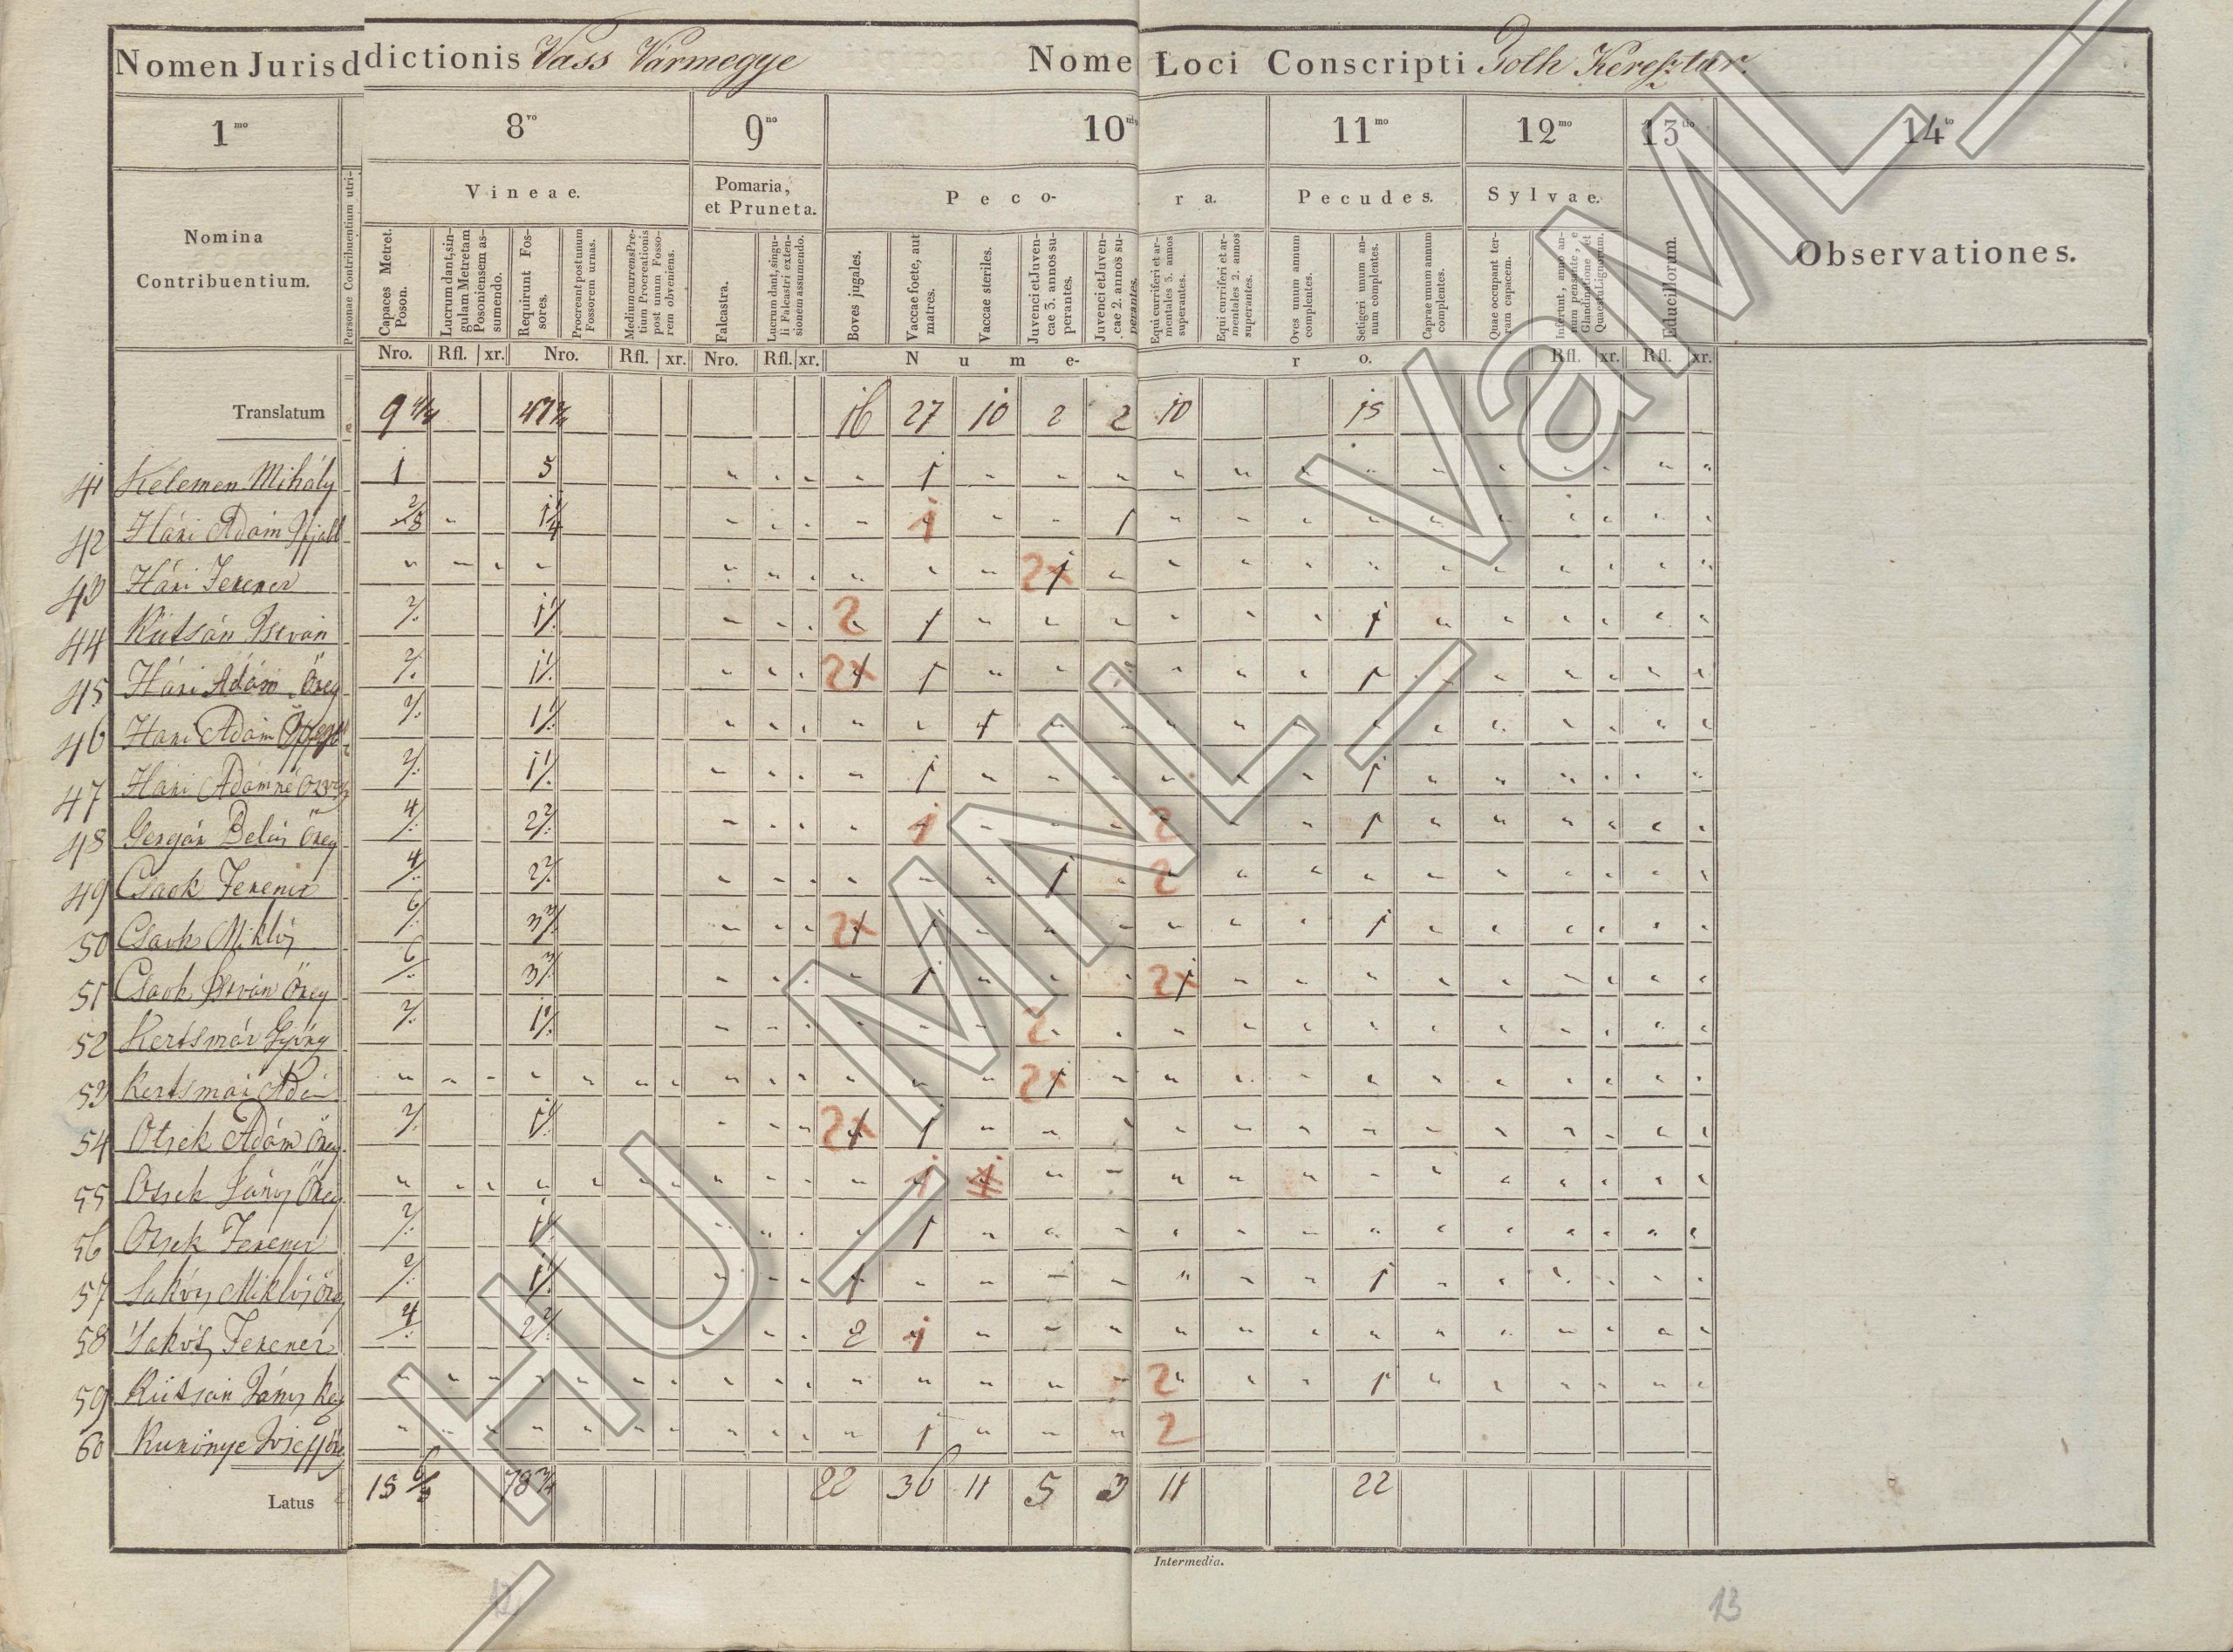 Nomen Jurisd dictionis Vass Vármegye Nome Loci Conscripti Toth Keresztur.
1mo 8vo 9no 10mo 11mo 12mo 13tio 14to
Nomina Contribuentium.
Personae Contribuentium utri-
Vineae.
Pomaria, et Pruneta.
Peco- ra.
Pecudes.
Sylvae.
Observationes.
Capaces Metret. Poson.
Lucrum dant, singulam Metretam Posoniensem assumendo.
Requirunt Fossores.
Procreant post unum Fossorem urnas.
Medium currens Pretium Procreationis post unum Fossorem obveniens.
Falcastra.
Lucrum dant, singuli Falcastri extensionem assumendo.
Boves jugales.
Vaccae foetae, aut matres.
Vaccae steriles.
Juvenci et Juvencae 3. annos superantes.
Juvenci et Juvencae 2. annos superantes.
Equi curriferi et armentales 3. annos superantes.
Equi curriferi et armentales 2. annos superantes.
Oves unum annum complentes.
Setigeri unum annum complentes.
Caprae unum annum complentes.
Quae occupant terram capacem.
Inferunt, anno annum pensante, e Glandinatione et Quaestu Lignorum.
Educillorum.
Nro. Rfl. xr. Nro. Rfl. xr. Nro. Rfl. xr. Nume- ro. Rfl. xr. Rfl. xr.
Translatum 9 4/8 47 2/4 16 27 10 2 2 10 15
41 Kelemen Mihály 1 5 1
42 Hári Adám 2/8 1 1/4 1 1
43 Hári Ferencz 2x 1
44 Kütsán István 2/. 1 1/. 2 1 1
45 Hári Ádám Öreg 2/. 1 1/. 2x 1 1 1
46 Hari Adám 2/. 1 1/. 1
47 Hári Ádámné 2/. 1 1/. 1 1
48 Gergár Öreg 4/. 2 2/. 1 2 1
49 Csaok Ferencz 4/. 2 2/. 1 2
50 Csaok Miklós 6/. 3 3/. 2x 1 1 1
51 Csaok István Öreg 6/. 3 3/. 1 2x 1
52 Kertsmár György 2/. 1 1/. 2
53 Kertsmár Adám 2x 1
54 Otsek Ádám Öreg 2/. 1 1/. 2x 1 1
55 Otsek János Öreg 1 1
56 Otsek Ferencz 2/. 1 1/. 1
57 Miklós Öreg 2/. 1 1/. 1 1
58 Ferencz 4/. 2 2/. 2 1
59 Kütsán János 2 1
60 Kukönye József 1 2
Latus 15 6/8 78 3/4 22 36 11 5 3 11 22
Intermedia.
12 13
HU_MNL_VaML_